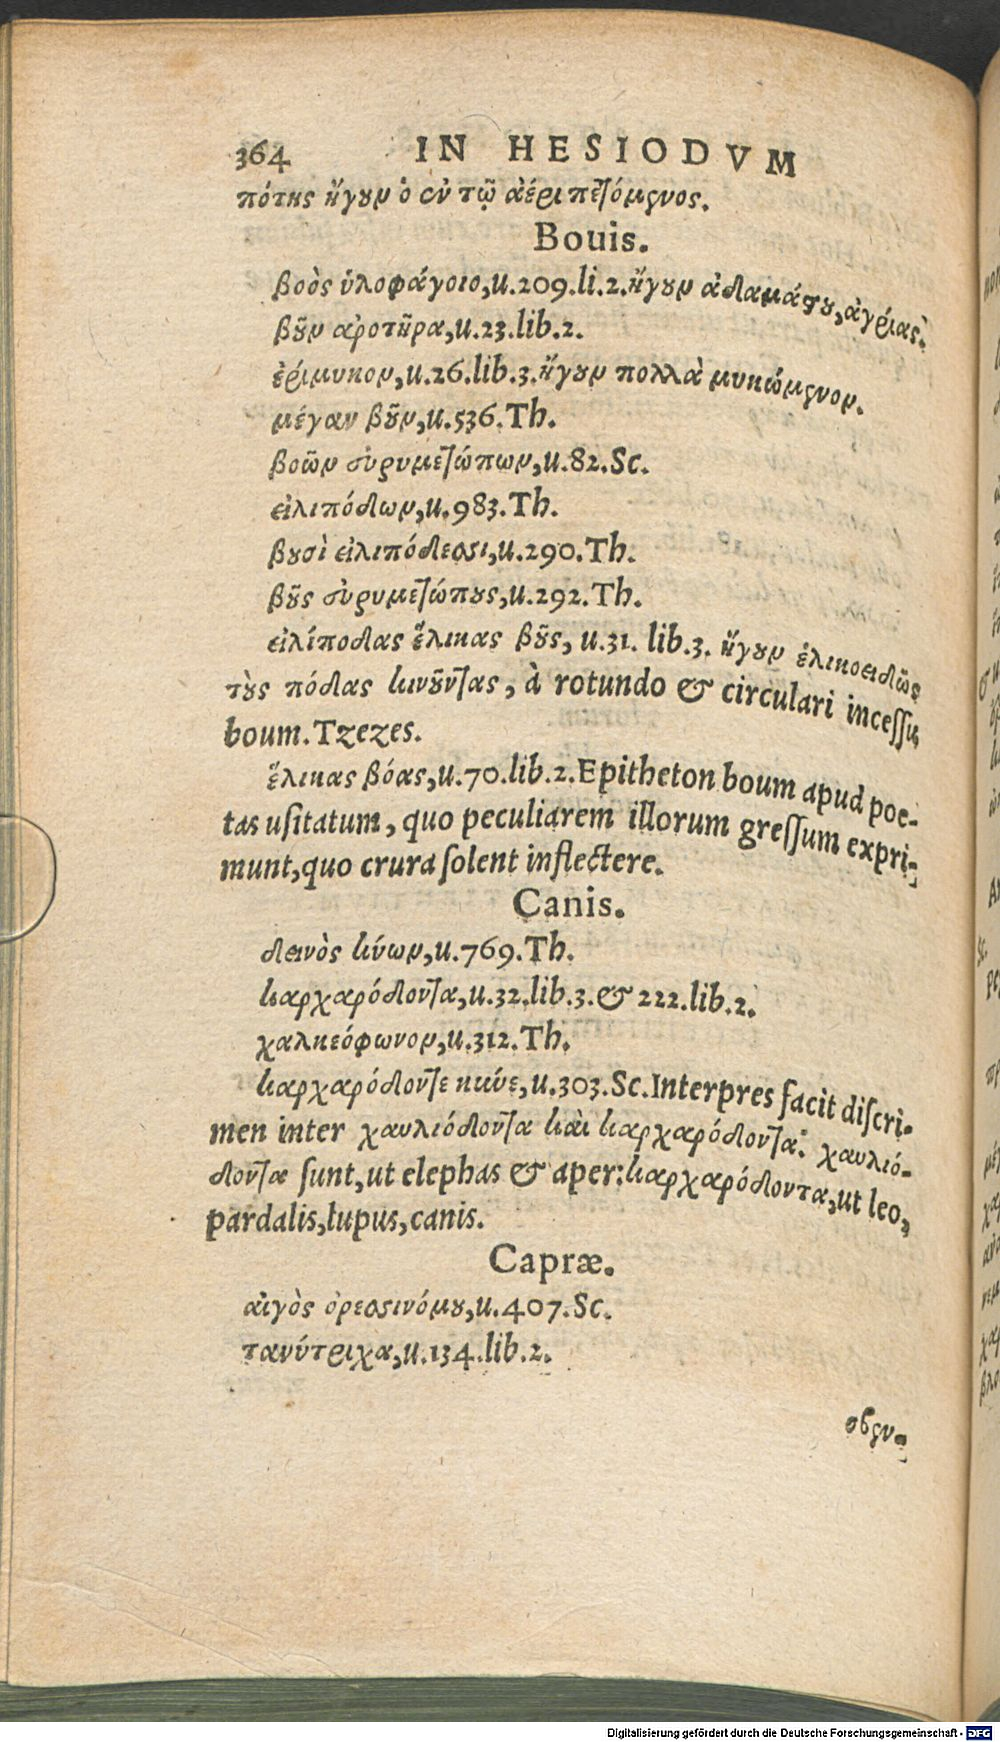 364 IN HESIODVM
πότης ἤγουν ὁ ἐν τῷ ἀέρι πετόμενος.
Bouis.
βοὸς ὑλοφάγοιο, u. 209. li. 2. ἤγουν ἀδαμάστου, ἀγρίας.
βοῦν ἀροτῆρα, u. 23. lib. 2.
ἐρίμυκον, u. 26. lib. 3. ἤγουν πολλὰ μυκώμενον.
μέγαν βοῦν, u. 536. Th.
βοῶν εὐρυμετώπων, u. 82. Sc.
εἰλιπόδων, u. 983. Th.
βουσὶ εἰλιπόδεσσι, u. 290. Th.
βοῦς εὐρυμετώπους, u. 292. Th.
εἰλίποδας ἕλικας βοῦς, u. 31. lib. 3. ἤγουν ἑλικοειδῶς
τοὺς πόδας κινοῦντας, à rotundo & circulari incessu
boum. Tzezes.
ἕλικας βόας, u. 70. lib. 2. Epitheton boum apud poe-
tas usitatum, quo peculiarem illorum gressum expri-
munt, quo crura solent inflectere.
Canis.
δεινὸς κύων, u. 769. Th.
καρχαρόδοντα, u. 32. lib. 3. & 222. lib. 2.
χαλκεόφωνον, u. 312. Th.
καρχαρόδοντε κύνε, u. 303. Sc. Interpres facit discri-
men inter χαυλιόδοντα καὶ καρχαρόδοντα: χαυλιό-
δοντα sunt, ut elephas & aper: καρχαρόδοντα, ut leo,
pardalis, lupus, canis.
Capræ.
αἰγὸς ὀρεσσινόμου, u. 407. Sc.
τανύτριχα, u. 134. lib. 2.
σβεν-
Digitalisierung gefördert durch die Deutsche Forschungsgemeinschaft - DFG